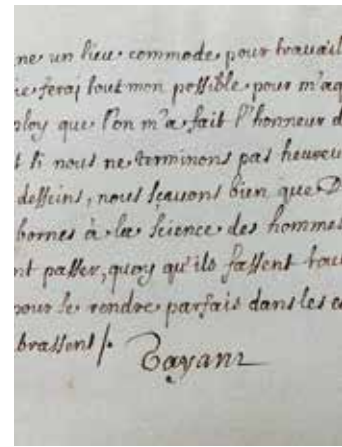 ne un lieu commode pour travail
je feray tout mon possible pour m'aq
ploy que l'on m'a fait l'honneur d
t si nous ne terminons pas heureu
desseins, nous sçavons bien que D
bornes à la science des hommes
nt passer, quoy qu'ils fassent tou
pour se rendre parfais dans les
brassent /.
Gayant